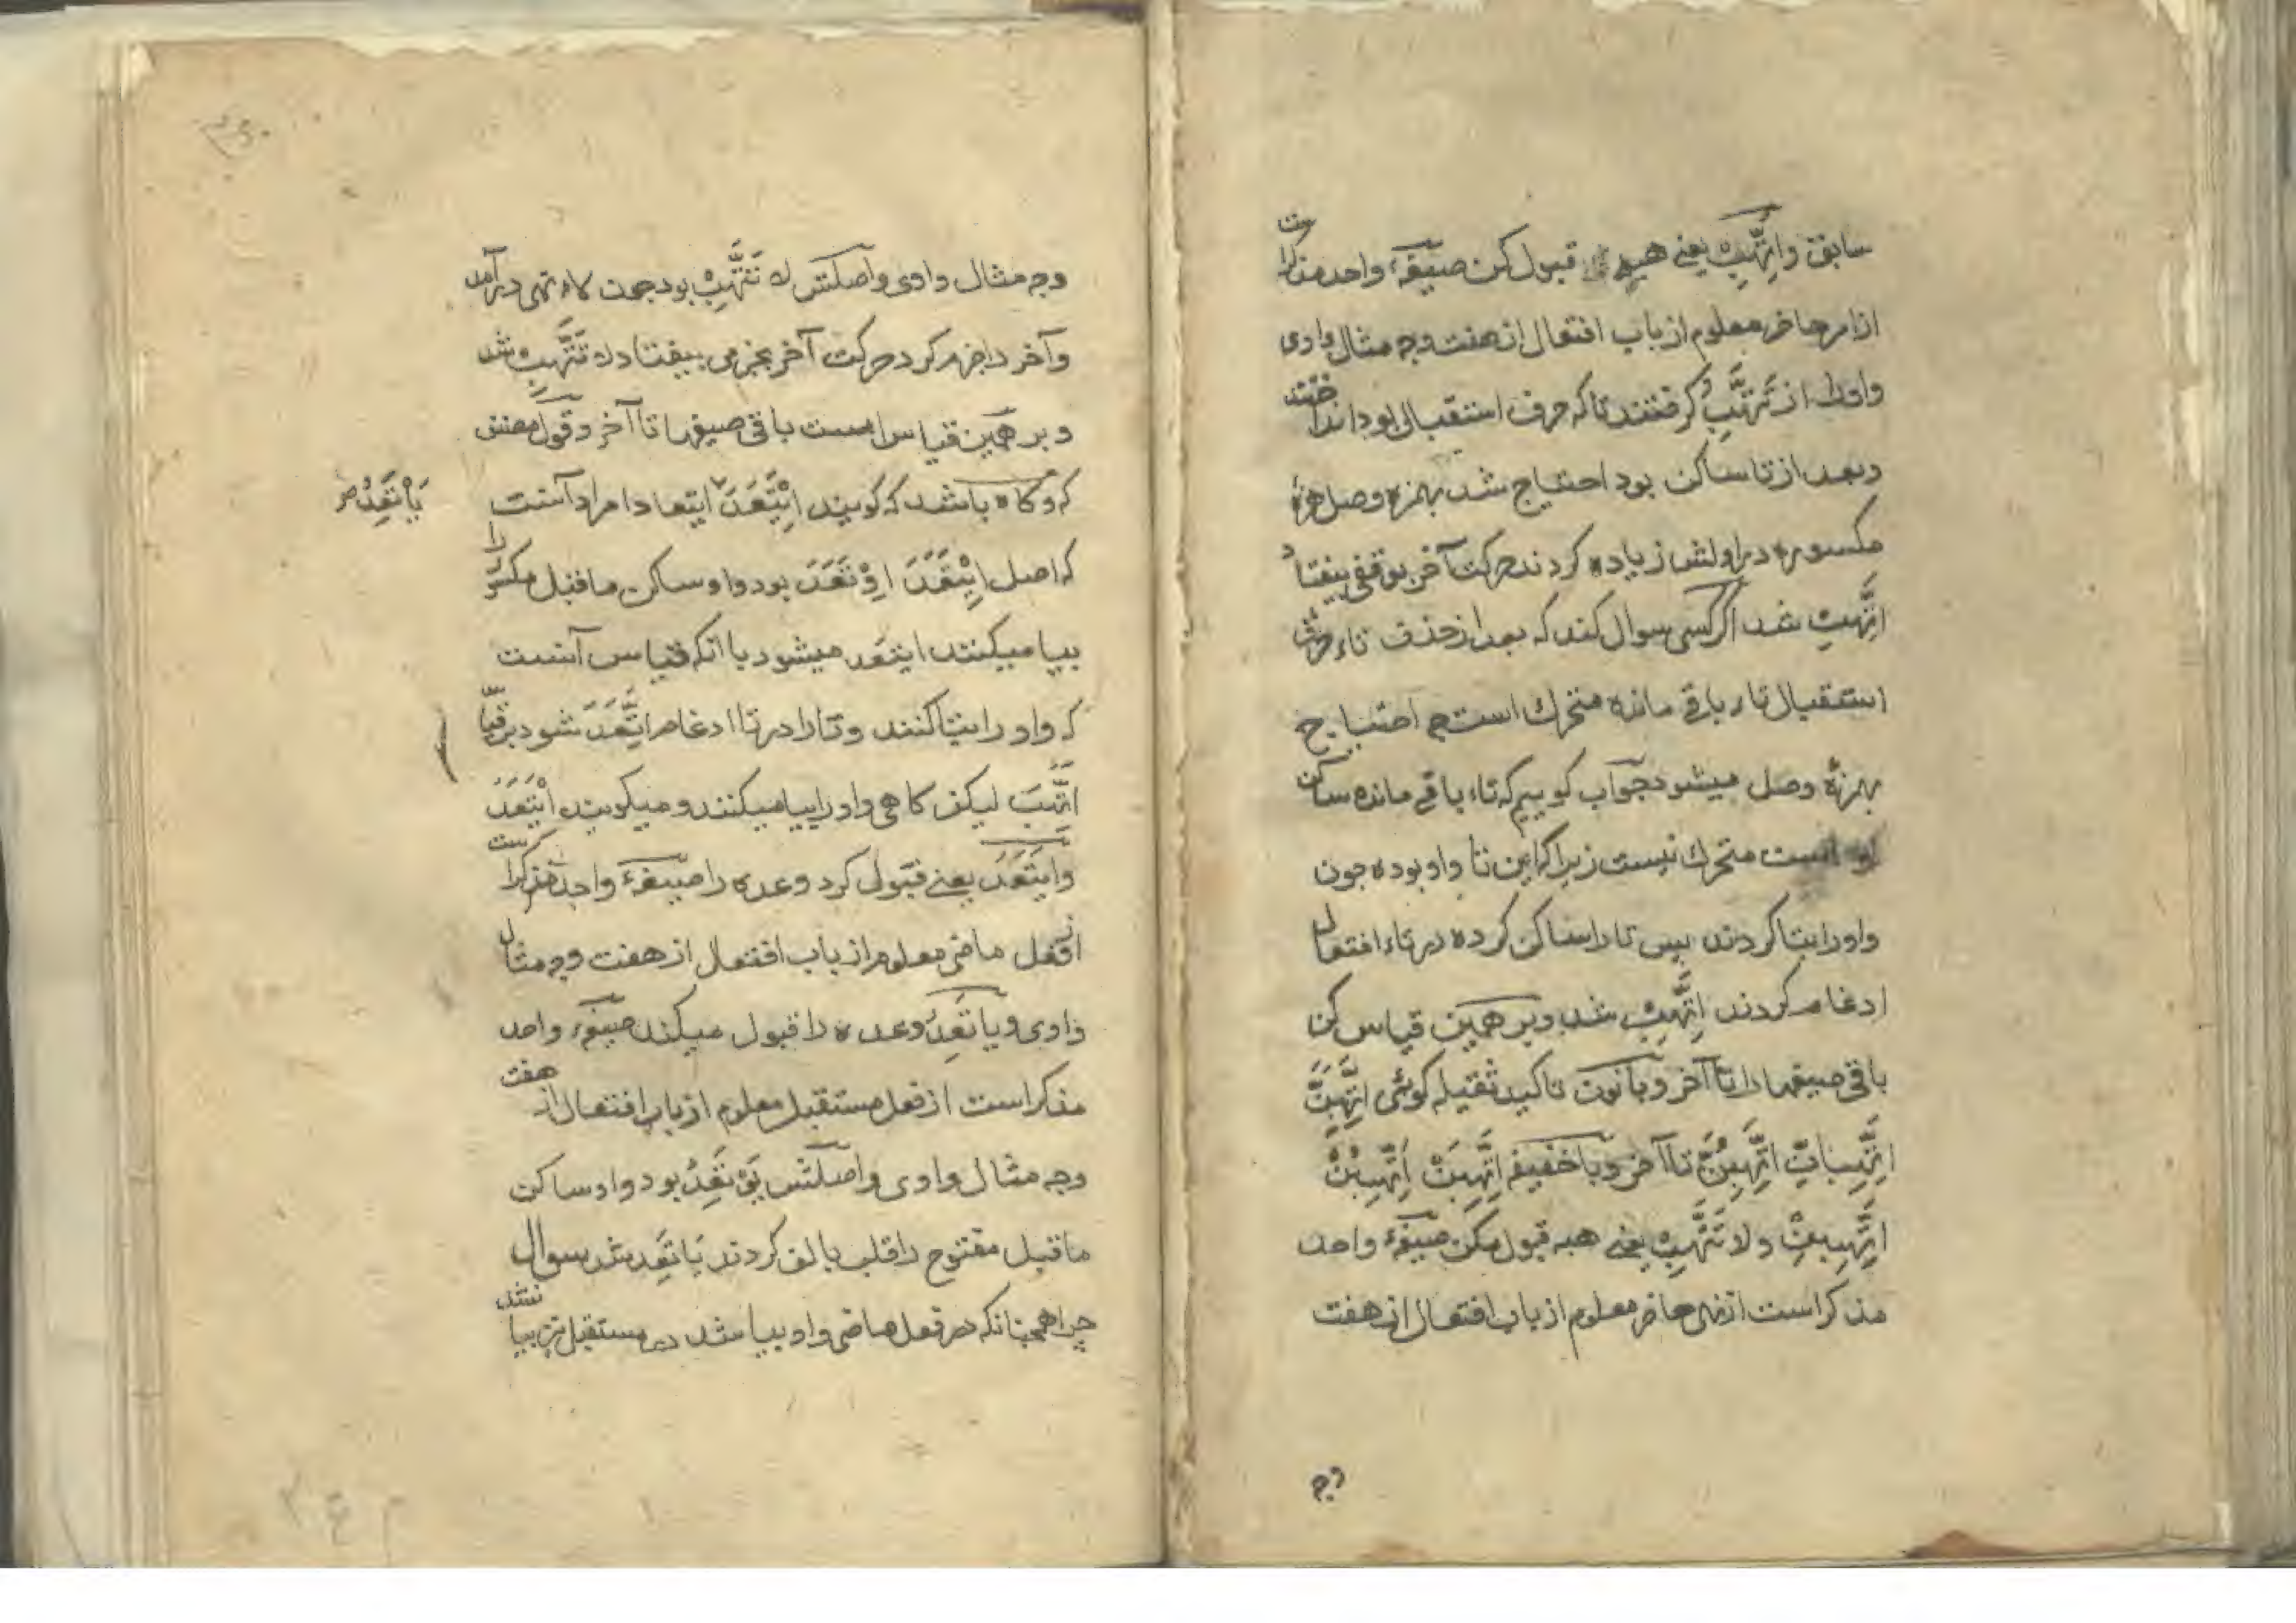 سابق واِتَّهِبْ یعنے هبه قبول کن صیغهٔ واحد مذکراست
از امر حاضر معلوم از باب افتعال از هفت وجه مثال وادی
واورا از تَتَّهِبُ گرفتند تا که حرف استقبالی بود انداختند
وبعد از تا ساکن بود احتیاج شد بهمزه وصل همزهٔ
مکسوره در اولش زیاده کردند حرکت آخر بوقفی بیفتاد
اتَّهِبْ شد اگر کسی سوال کند که بعد از حذف تاء حرف
استقبال تاء باقی مانده متحرك است چه احتیاج
بهمزهٔ وصل میشود جواب گوییم که تاء باقے مانده ساکن
است متحرك نیست زیرا که این تا واو بوده چون
واورا بتا کردند پس تا را ساکن کرده در تاء افتعال
ادغام کردند اِتَّهِبْ شد وبر همین قیاس کن
باقی صیغها را تا آخر وبا نون تاکید ثقیله گوئی اتَّهِبَنَّ
اتَّهِبَانِّ اتَّهِبُنَّ تا آخر وبا خفیفه اتَّهِبَنْ اتَّهِبُنْ
اتَّهِبِنْ ولا تَتَّهِبْ یعنے هبه قبول مکن صیغهٔ واحد
مذکراست از نهی حاضر معلوم از باب افتعال از هفت
وجه
وجه مثال وادی واصلش لا تَتَّهِبُ بود چون لاء نهی در آمد
وآخر را جزم کرد حرکت آخر بجزمی بیفتاد لا تَتَّهِبْ شد
وبر همین قیاس است باقی صیغها تا آخر وقول مصنف
که وگاه باشد که گویند اِیْتَعَدَ ایتعادا مراد آنست
یَاْتَعِدُ صر
که اصل اِیْتَعَدَ اِوْتَعَدَ بود واو ساکن ماقبل مکسور را
بیا میکنند ایتعد میشود با آنکه قیاس آنست
که واو را بتا کنند وتا را در تا ادغام اتَّعَدَ شود بر قیاس
اتَّهَبَ لیکن گاهی واو را بیا میکنند ومیگویند ایْتَعَدَ
وایتَعَدَ یعنے قبول کرد وعده را صیغهٔ واحد مذکراست
از فعل ماضی معلوم از باب افتعال از هفت وجه مثال
وادی ویا تَعِدُ وعده را قبول میکند صیغهٔ واحد
مذکراست از فعل مستقبل معلوم از باب افتعال از هفت
وجه مثال وادی واصلش یَوْتَعِدُ بود واو ساکن
ماقبل مفتوح را قلب بالف کردند یَاتَعِدُ شد سوال
چرا همچنانکه در فعل ماضی واو بیا شد در مستقبل نیز بیا نشد